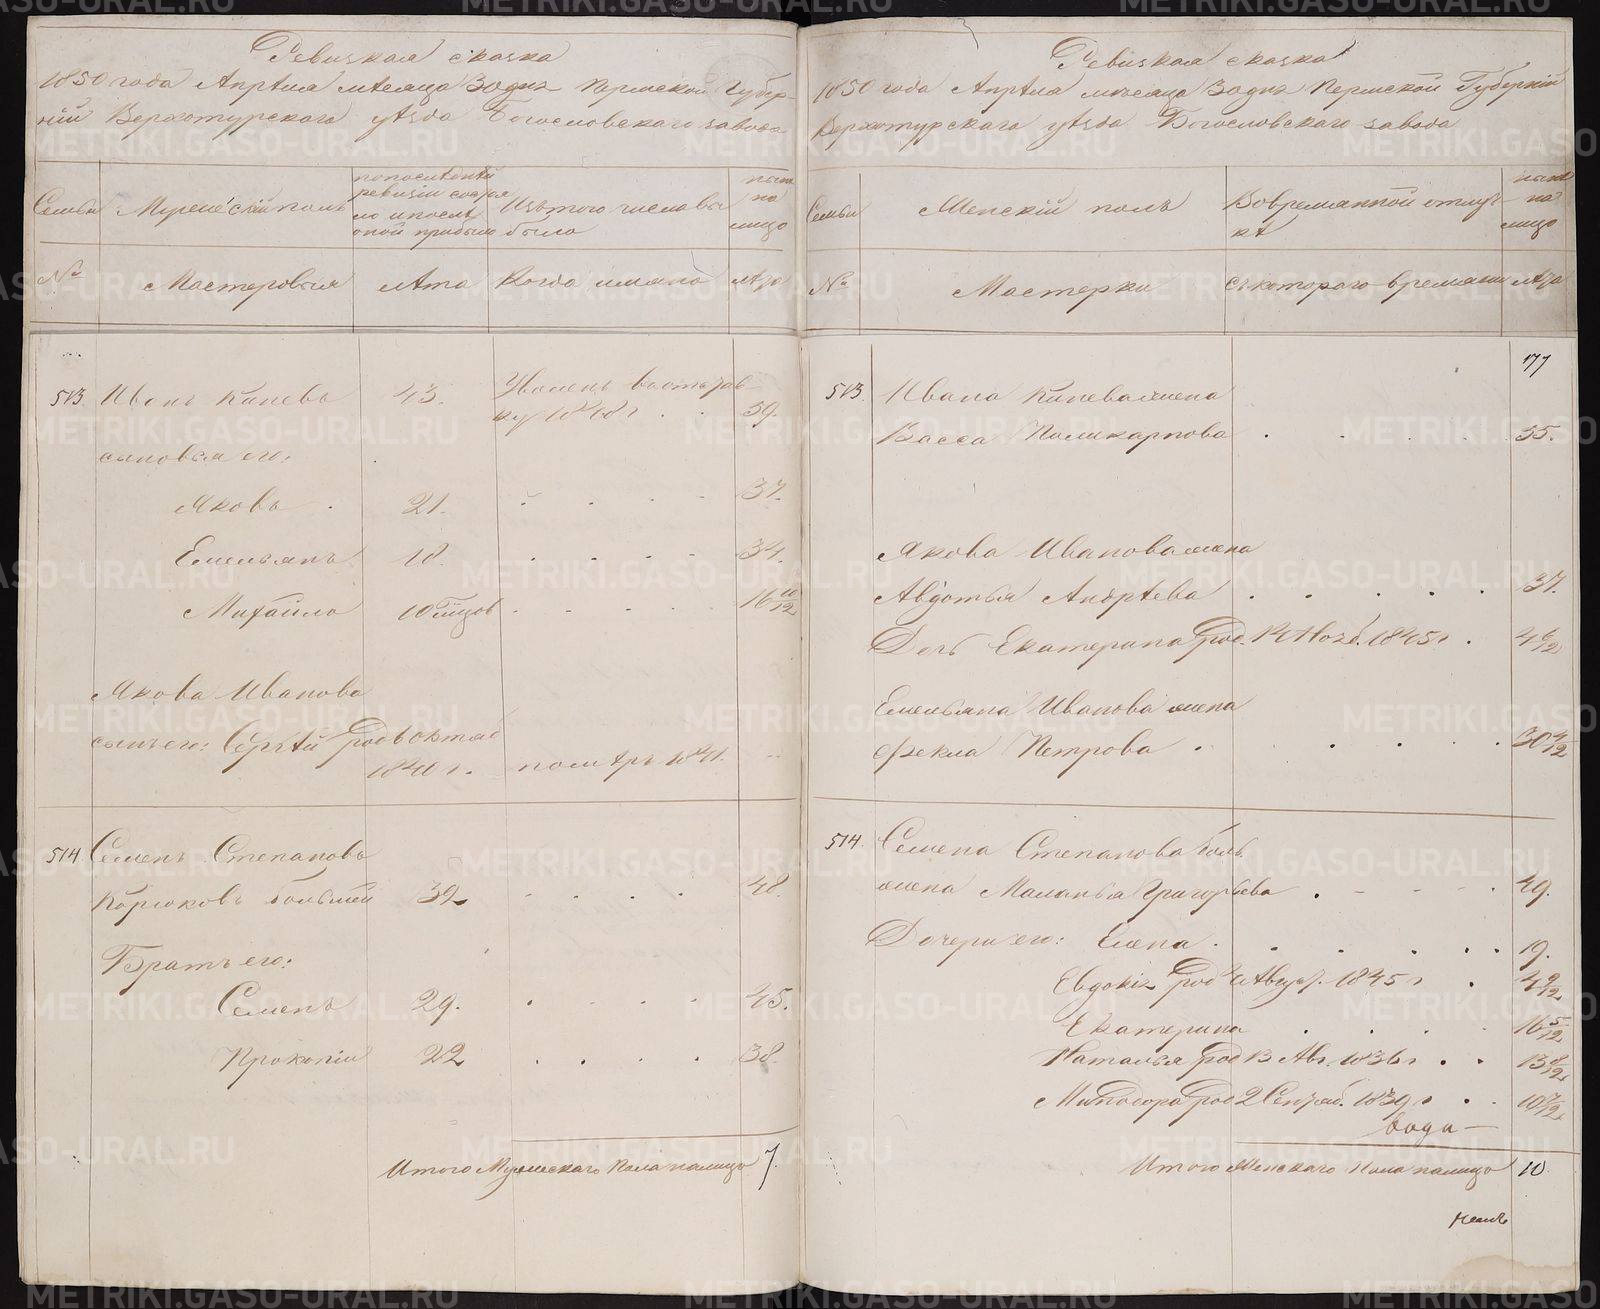 Ревизская сказка
1850 года Апреля месяца 30 дня Пермской Губер-
нии Верхотурскаго уезда Богословскаго завода
Семьи
Мужеский полъ
по последней
ревизии состоя
ло и после
оной прибыло
Изъ того числа вы
было
ныне
на
лицо
№
Мастеровыя
лета
Когда имяно
лета
513.
Иванъ Киневъ
43.
Уволенъ въ отстав-
ку 1848 г
59.
сыновья его:
Яковъ
21.
37.
Емельянъ
18.
34.
Михайло
10 мцов
16 10/12
Якова Иванова
сынъ его: Сергей род. в октяб
1840 г.
помѣръ 1841.
514
Семенъ Степановъ
Корюковъ большей
32
48.
Братья его:
Семенъ
29.
45.
Прокопий
22
38.
Итого Мужескаго пола налицо 7.
Ревизская сказка
1850 года Апреля месяца 30 дня Пермской Губернии
Верхотурскаго уезда Богословскаго завода
Семьи
Женский полъ
Во временной отлуч
ке
ныне
на
лицо
№
Мастерки
съ котораго времяни
лета
177
513.
Ивана Кинева жена
Васса Поликарпова
55.
Якова Иванова жена
Авдотья Андреева
37.
Дочь Екатерина род. 14 Нояб. 1845 г.
4 6/12
Емельяна Иванова жена
Фекла Петрова
30 4/12
514.
Семена Степанова боль.
жена Маланья Григорьева
49.
Дочери его: Елена
19.
Евдокия род Август. 1845 г
4 9/12
Екатерина
16 5/12
Наталья род 13 Авг. 1836 г
13 8/12
Минодора род 2 Сентяб. 1839
10 7/12
года —
Итого Женскаго пола налицо 10
METRIKI.GASO-URAL.RU